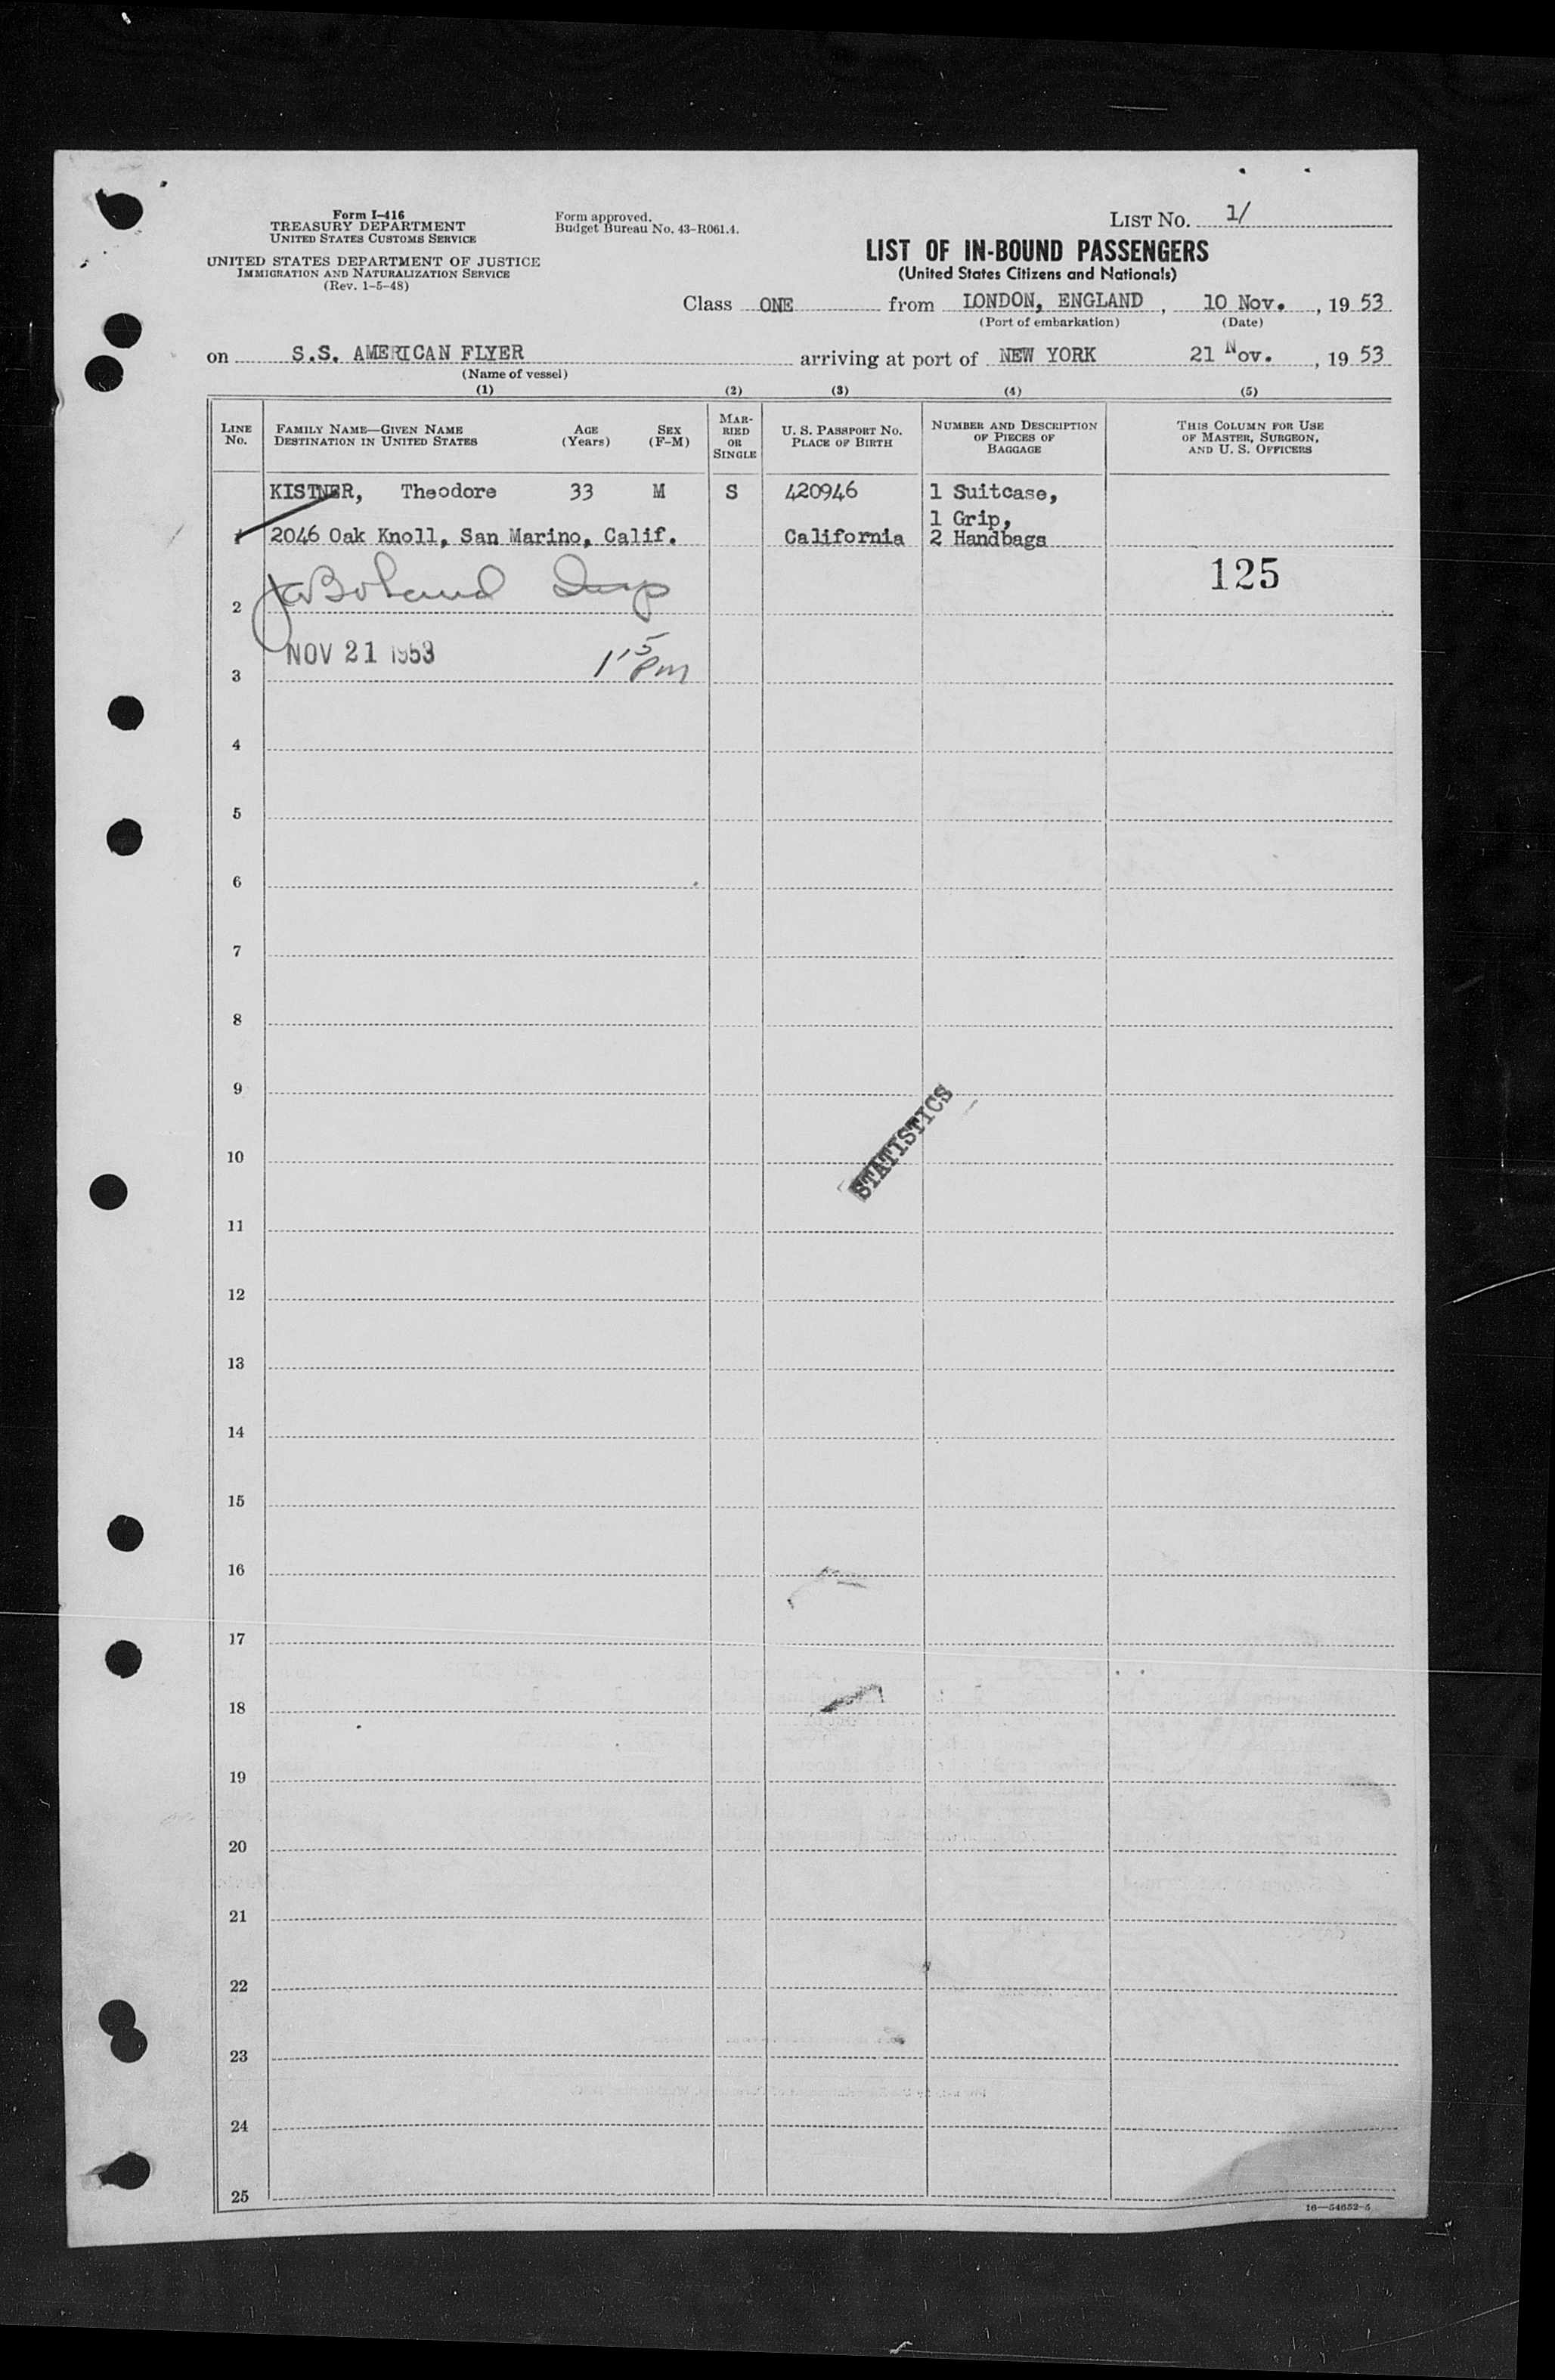 Form I-416
TREASURY DEPARTMENT
UNITED STATES CUSTOMS SERVICE
UNITED STATES DEPARTMENT OF JUSTICE
IMMIGRATION AND NATURALIZATION SERVICE
(Rev. 1-5-48)
Form approved.
Budget Bureau No. 43-R061.4.
LIST NO. 1/
LIST OF IN-BOUND PASSENGERS
(United States Citizens and Nationals)
Class ONE from LONDON, ENGLAND, 10 Nov., 19 53
(Port of embarkation) (Date)
on S.S. AMERICAN FLYER arriving at port of NEW YORK 21 Nov., 19 53
(Name of vessel)
(1) (2) (3) (4) (5)
LINE NO.
FAMILY NAME—GIVEN NAME
DESTINATION IN UNITED STATES
AGE
(Years)
SEX
(F-M)
MARRIED OR SINGLE
U. S. PASSPORT NO.
PLACE OF BIRTH
NUMBER AND DESCRIPTION
OF PIECES OF
BAGGAGE
THIS COLUMN FOR USE
OF MASTER, SURGEON,
AND U. S. OFFICERS
KISTNER, Theodore 33 M S 420946 1 Suitcase,
1 Grip,
1 2046 Oak Knoll, San Marino, Calif. California 2 Handbags
125
2 Boland Insp
NOV 21 1953 1 15 PM
3
4
5
6
7
8
9
STATISTICS
10
11
12
13
14
15
16
17
18
19
20
21
22
23
24
25
16—54652-5